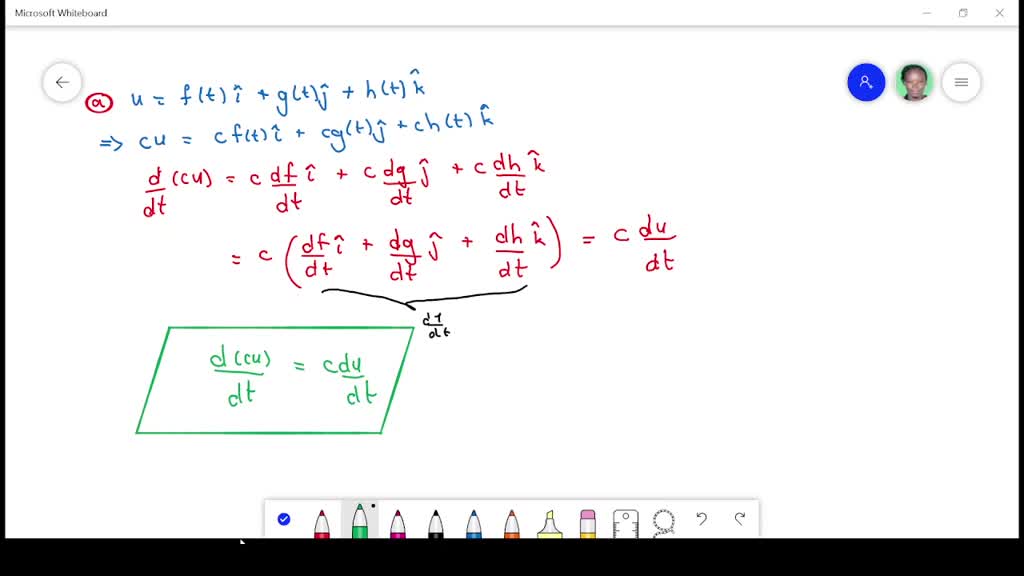 Microsoft Whiteboard
ⓐ u = f(t) î + g(t) ĵ + h(t) k̂
⇒ cu = c f(t) î + cg(t) ĵ + ch(t) k̂
d/dt (cu) = c df/dt î + c dg/dt ĵ + c dh/dt k̂
= c (df/dt î + dg/dt ĵ + dh/dt k̂) = c du/dt
d(cu)/dt = cdu/dt